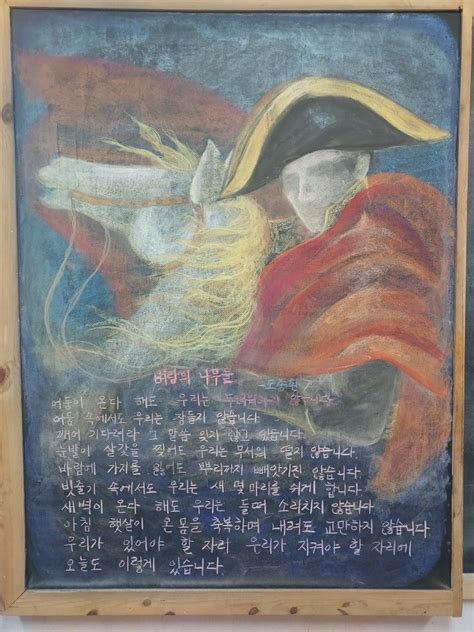 나무들
-도종환-
어둠이 온다 해도 우리는 두려워하지 않습니다
어둠 속에서도 우리는 잠들지 않습니다
깨어 기다려라 그 말씀 잊지 않고 있습니다
눈발이 살갗을 찢어도 우리는 무서워 떨지 않습니다.
바람에 가지를 잃어도 뿌리까지 빼앗기진 않습니다.
빗줄기 속에서도 우리는 새 몇 마리를 쉬게 합니다.
새벽이 온다 해도 우리는 들떠 소리치지 않습니다.
아침 햇살이 온몸을 축복하며 내려도 교만하지 않습니다.
우리가 있어야 할 자리 우리가 지켜야 할 자리에
오늘도 이렇게 있습니다.